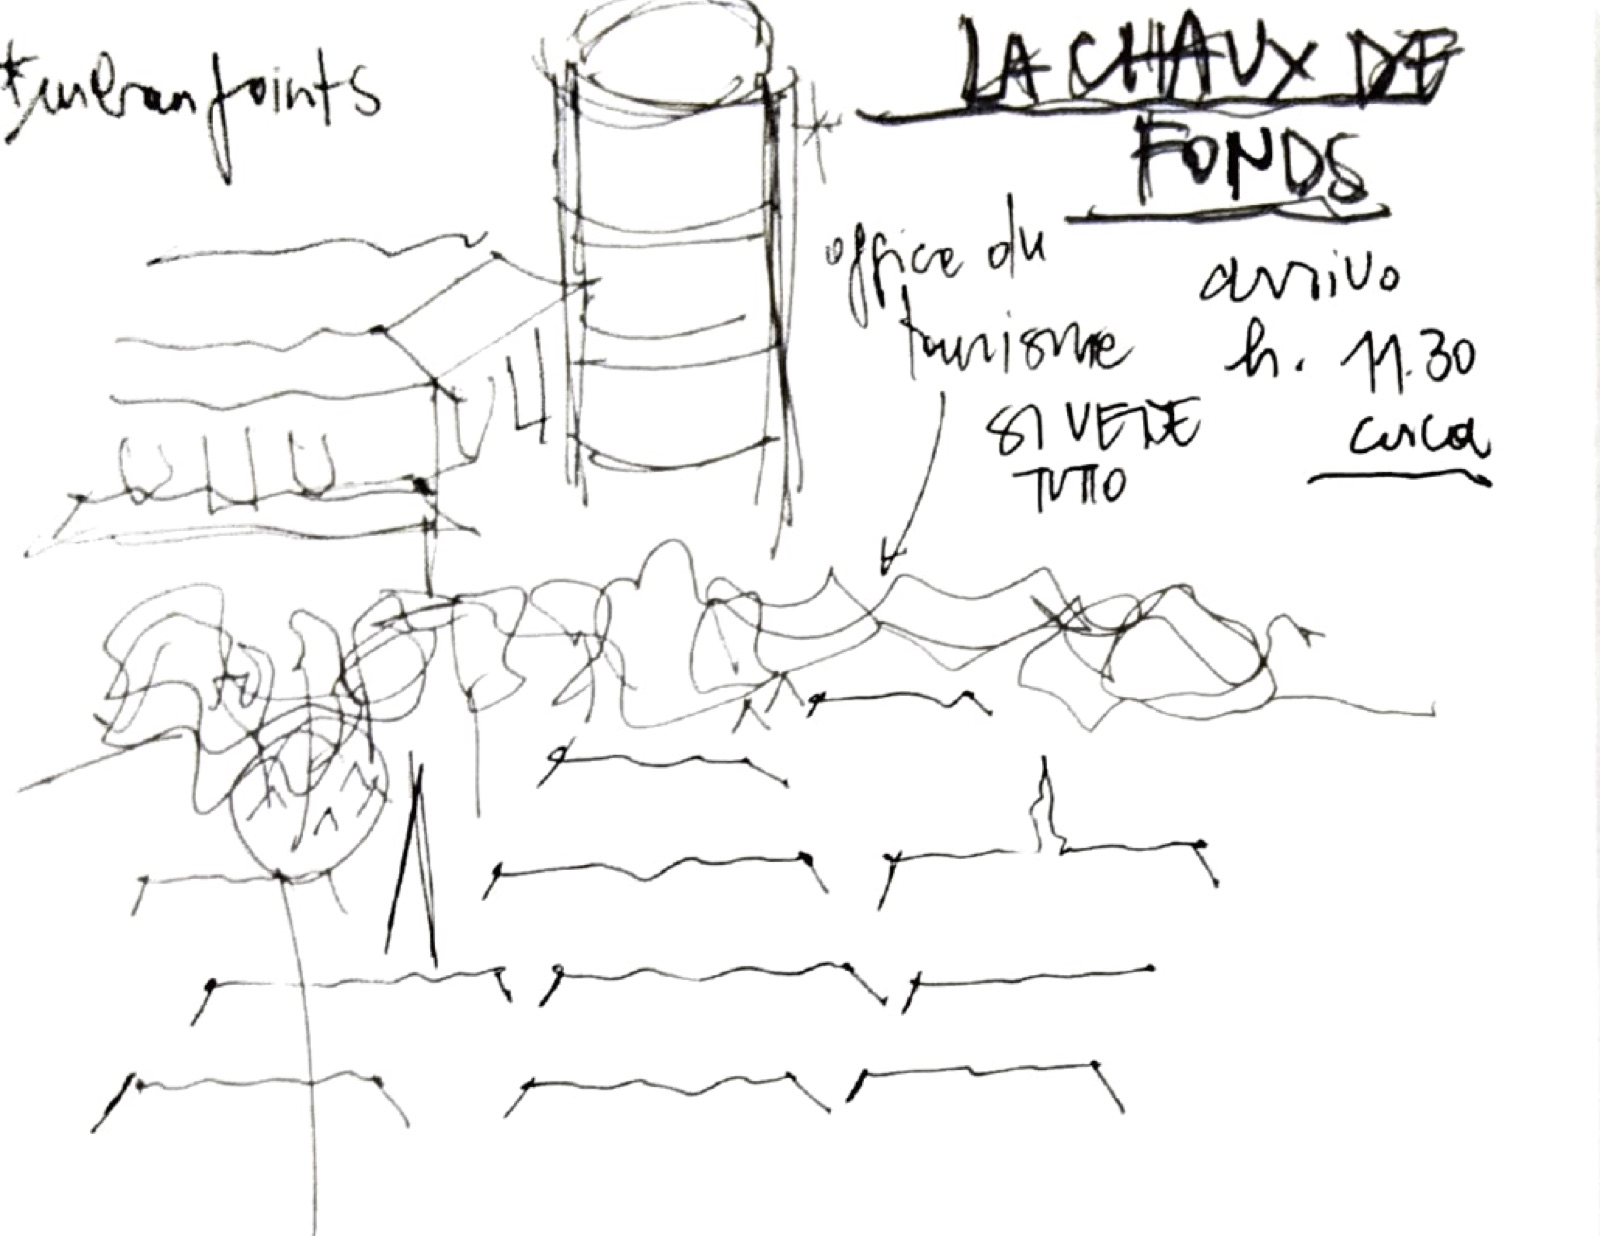 *urban points
LA CHAUX DE
FONDS
office du
tourisme
SI VEDE
TUTTO
arrivo
h. 11.30
circa